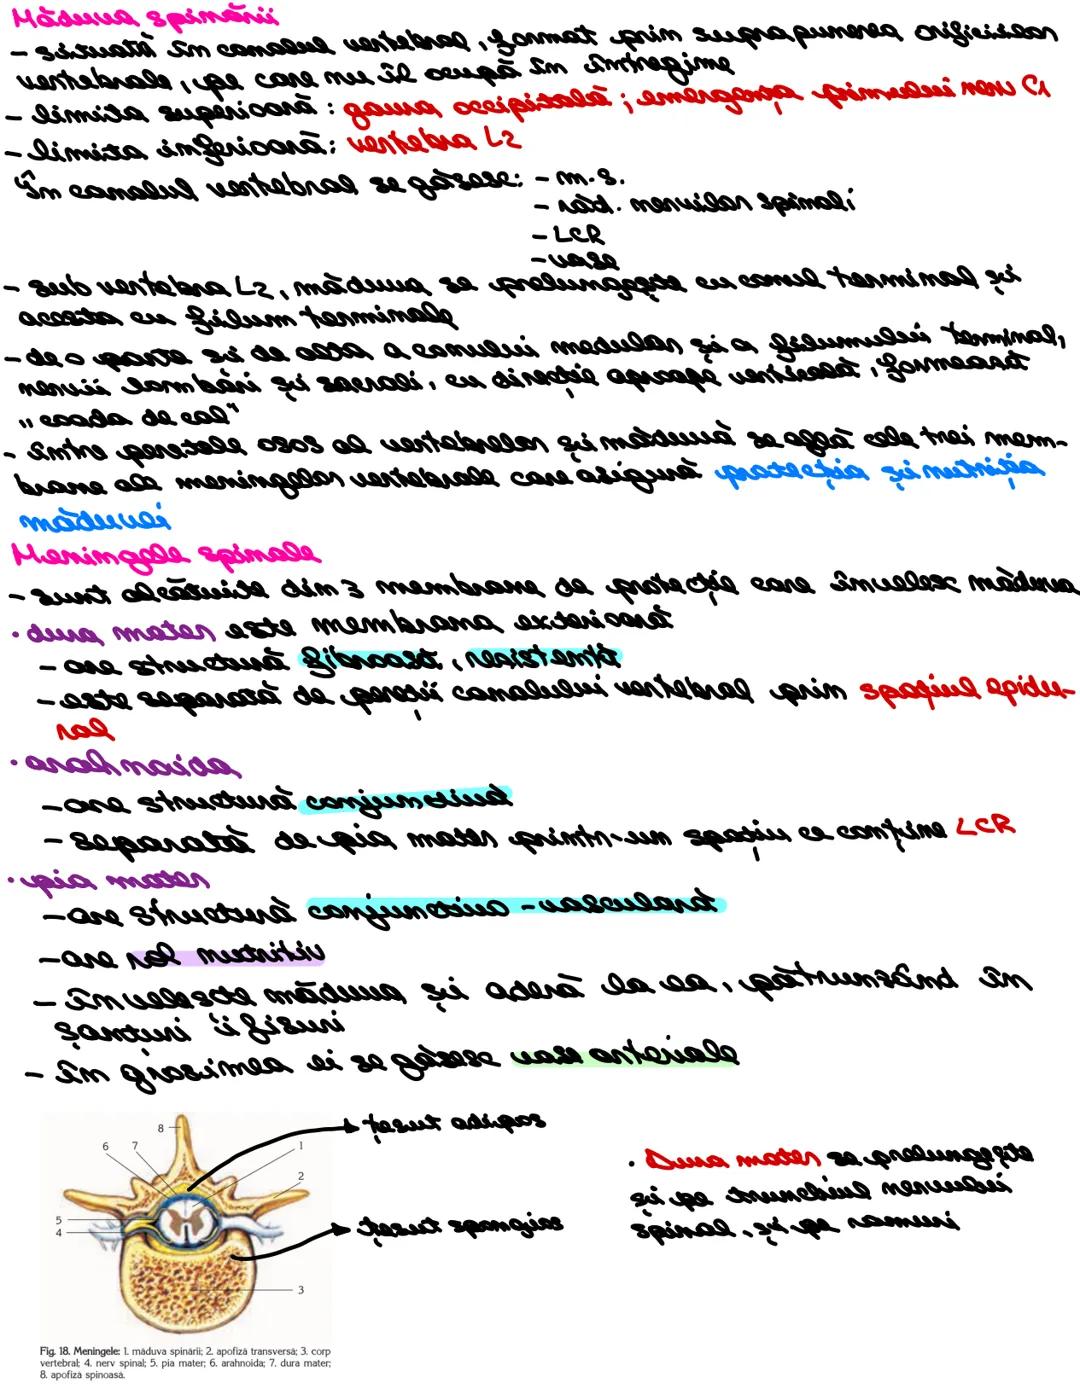 Măduva spinării
- situată în canalul vertebral, format prin suprapunerea orificiilor
vertebrale, pe care nu îl ocupă în întregime
- limita superioară: gaura occipitală; emergența primului nerv C1
- limita inferioară: vertebra L2
"În canalul vertebral se găsesc: - m.s.
- răd. nervilor spinali
- LCR
- vase
- sub vertebra L2, măduva se prelungește cu conul terminal și
acesta cu filum terminale
- de o parte și de alta a conului medular și a filumului terminal,
nervii lombări și sacrali, cu direcție aproape verticală, formează
"coada de cal"
- între peretele osos al vertebrelor și măduvă se află cele trei mem-
brane ale meningelor vertebrale care asigură protecția și nutriția
măduvei
Meningele spinale
- sunt alcătuite din 3 membrane de protecție care învelesc măduva
• dura mater este membrana exterioară
- are structură fibroasă, rezistentă
- este separată de pereții canalului vertebral prin spațiul epidu-
ral
• arahnoida
- are structură conjunctivă
- separată de pia mater printr-un spațiu ce conține LCR
• pia mater
- are structură conjunctivo-vasculară
- are rol nutritiv
- învelește măduva și aderă la ea, pătrunzând în
șanțuri și fisuri
- în grosimea ei se găsesc vase arteriale
țesut adipos
țesut spongios
• Dura mater se prelungește
și pe trunchiul nervului
spinal, și pe ramuri
8
6 7
1
2
5
4
3
Fig. 18. Meningele: 1. măduva spinării; 2. apofiză transversă; 3. corp
vertebral; 4. nerv spinal; 5. pia mater; 6. arahnoida; 7. dura mater;
8. apofiză spinoasă.